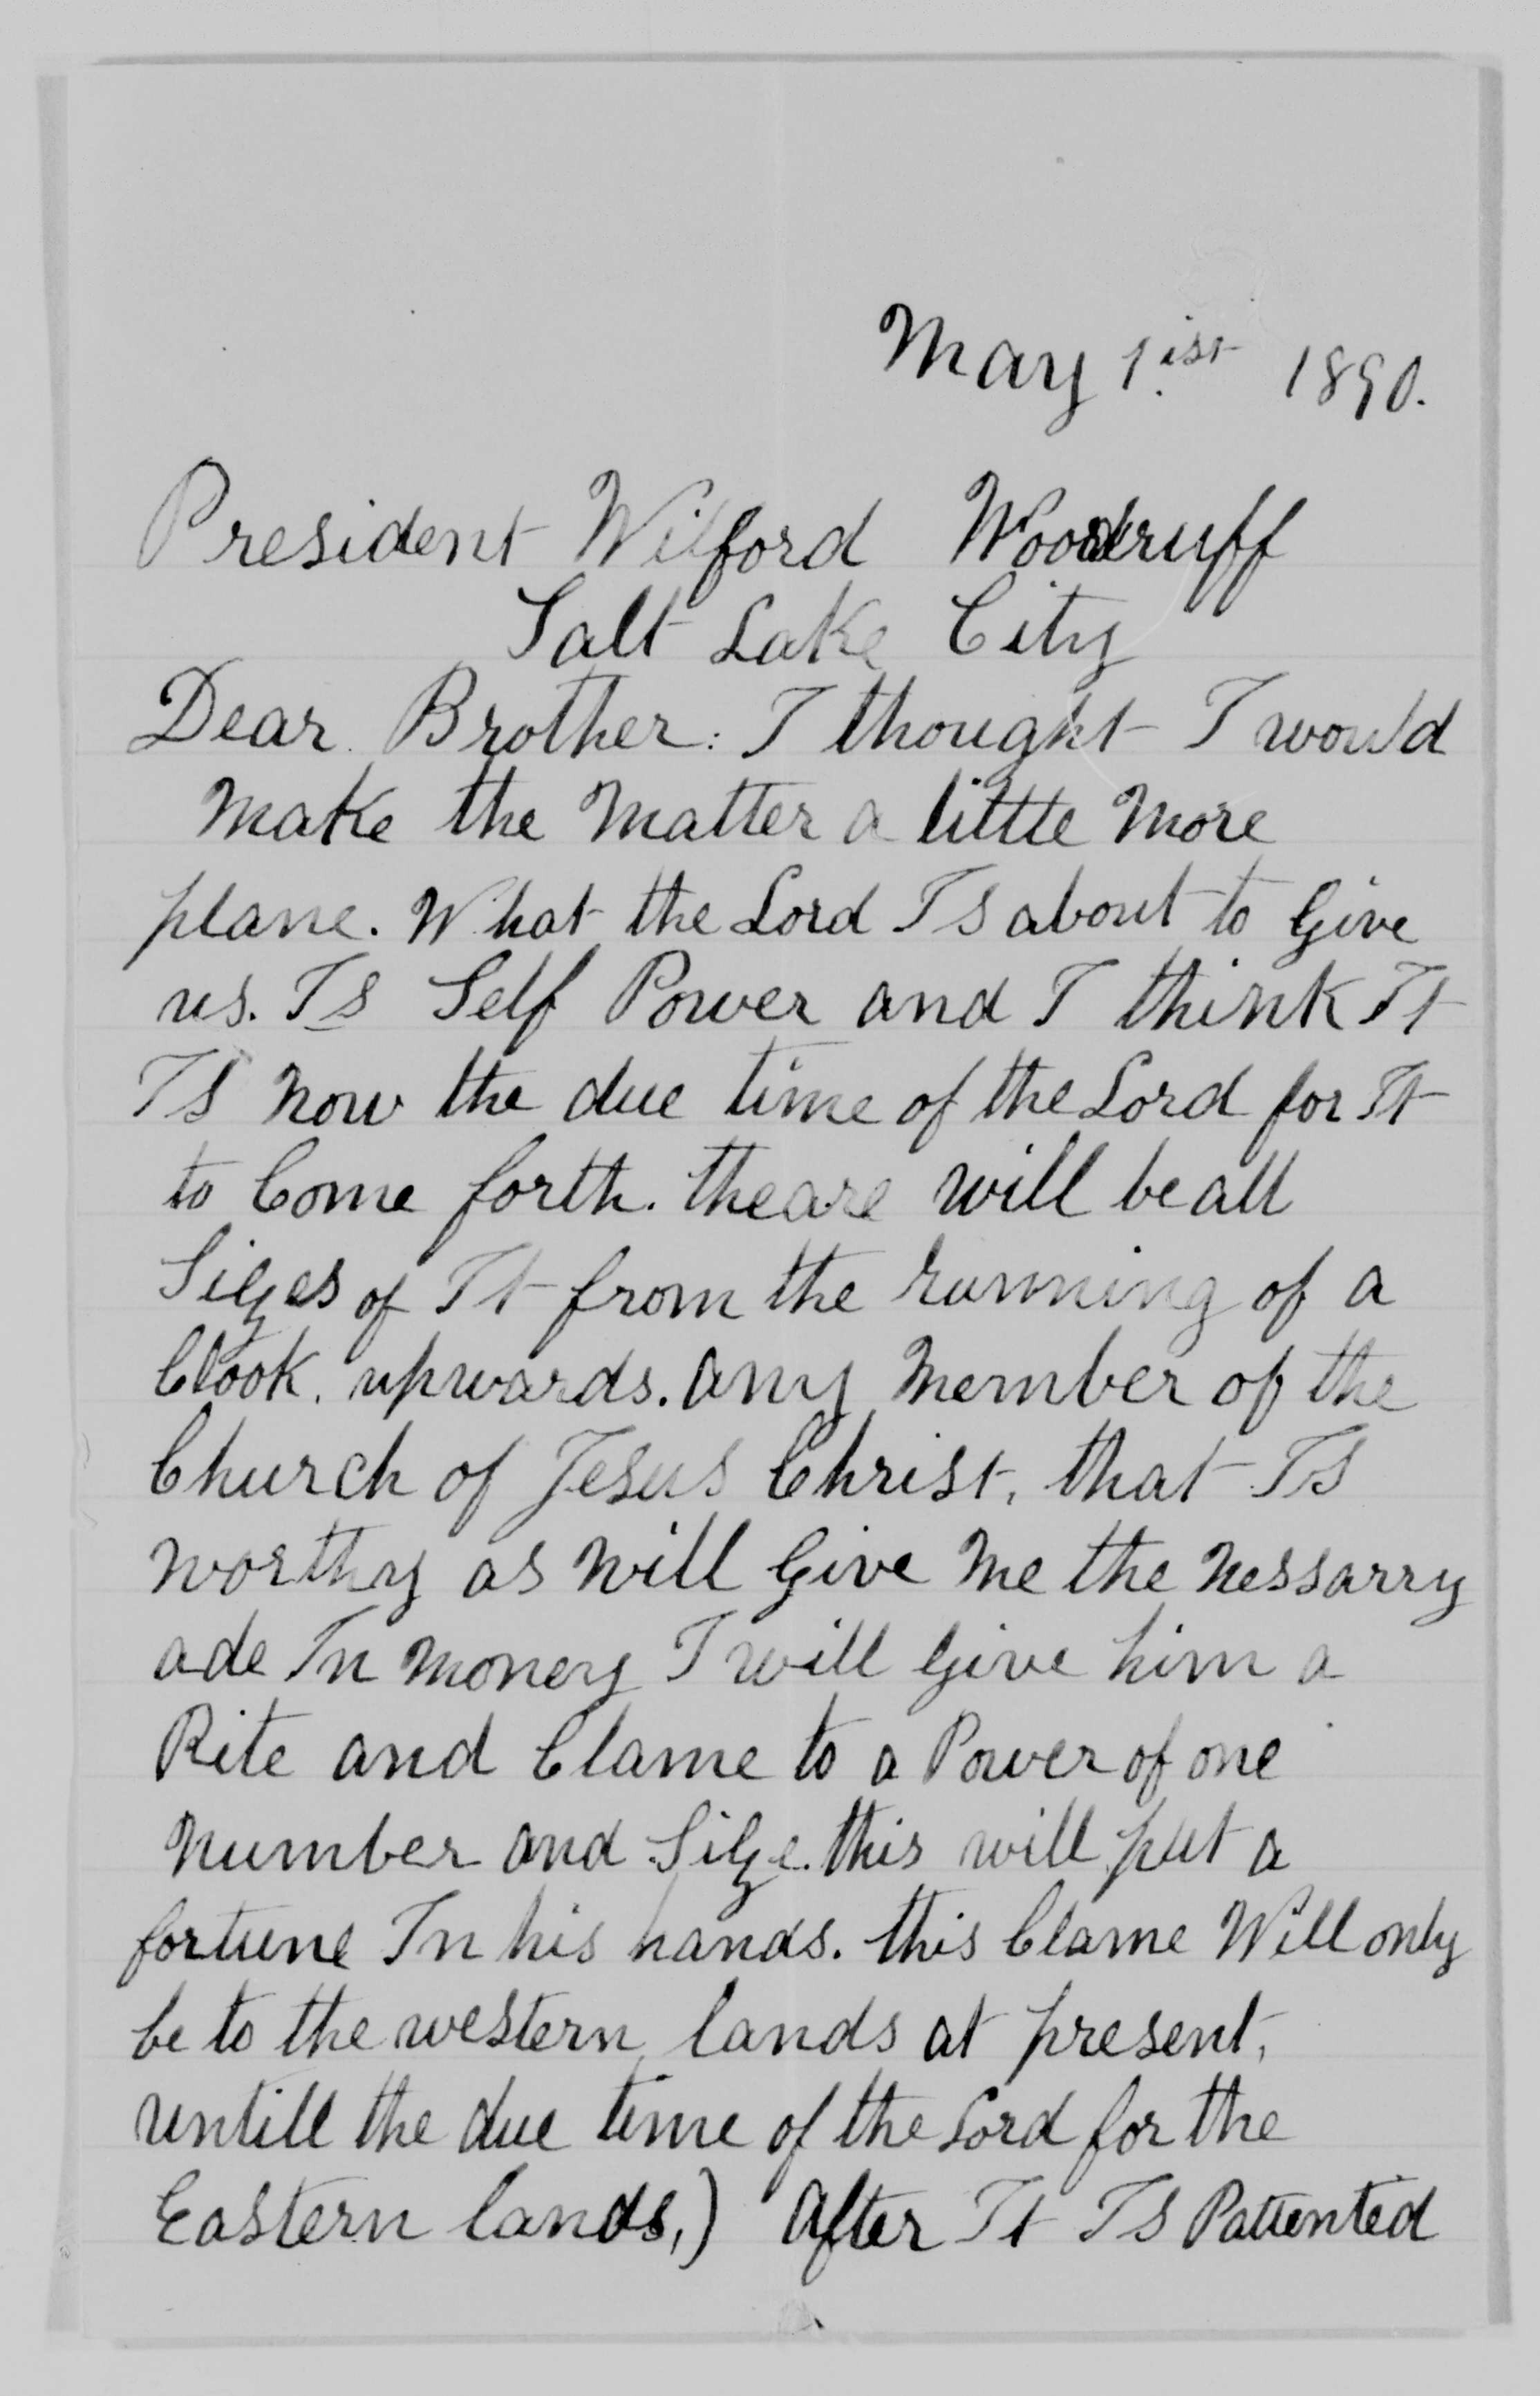 May 1.ist 1890.
President Wilford Woodruff
Salt Lake City
Dear Brother: I thought I would
make the matter a little more
plane. What the Lord Is about to Give
us. Is Self Power and I think It
Is now the due time of the Lord for It
to Come forth. theare will be all
Sizes of It from the running of a
Clook. upwards. any member of the
Church of Jesus Christ, that Is
worthy as will Give me the nessarry
ade In money I will Give him a
Rite and Clame to a Power of one
number and Size. this will put a
fortune In his hands. this Clame Will only
be to the western lands at present,
untill the due time of the Lord for the
Eastern lands,) After It Is Pattented